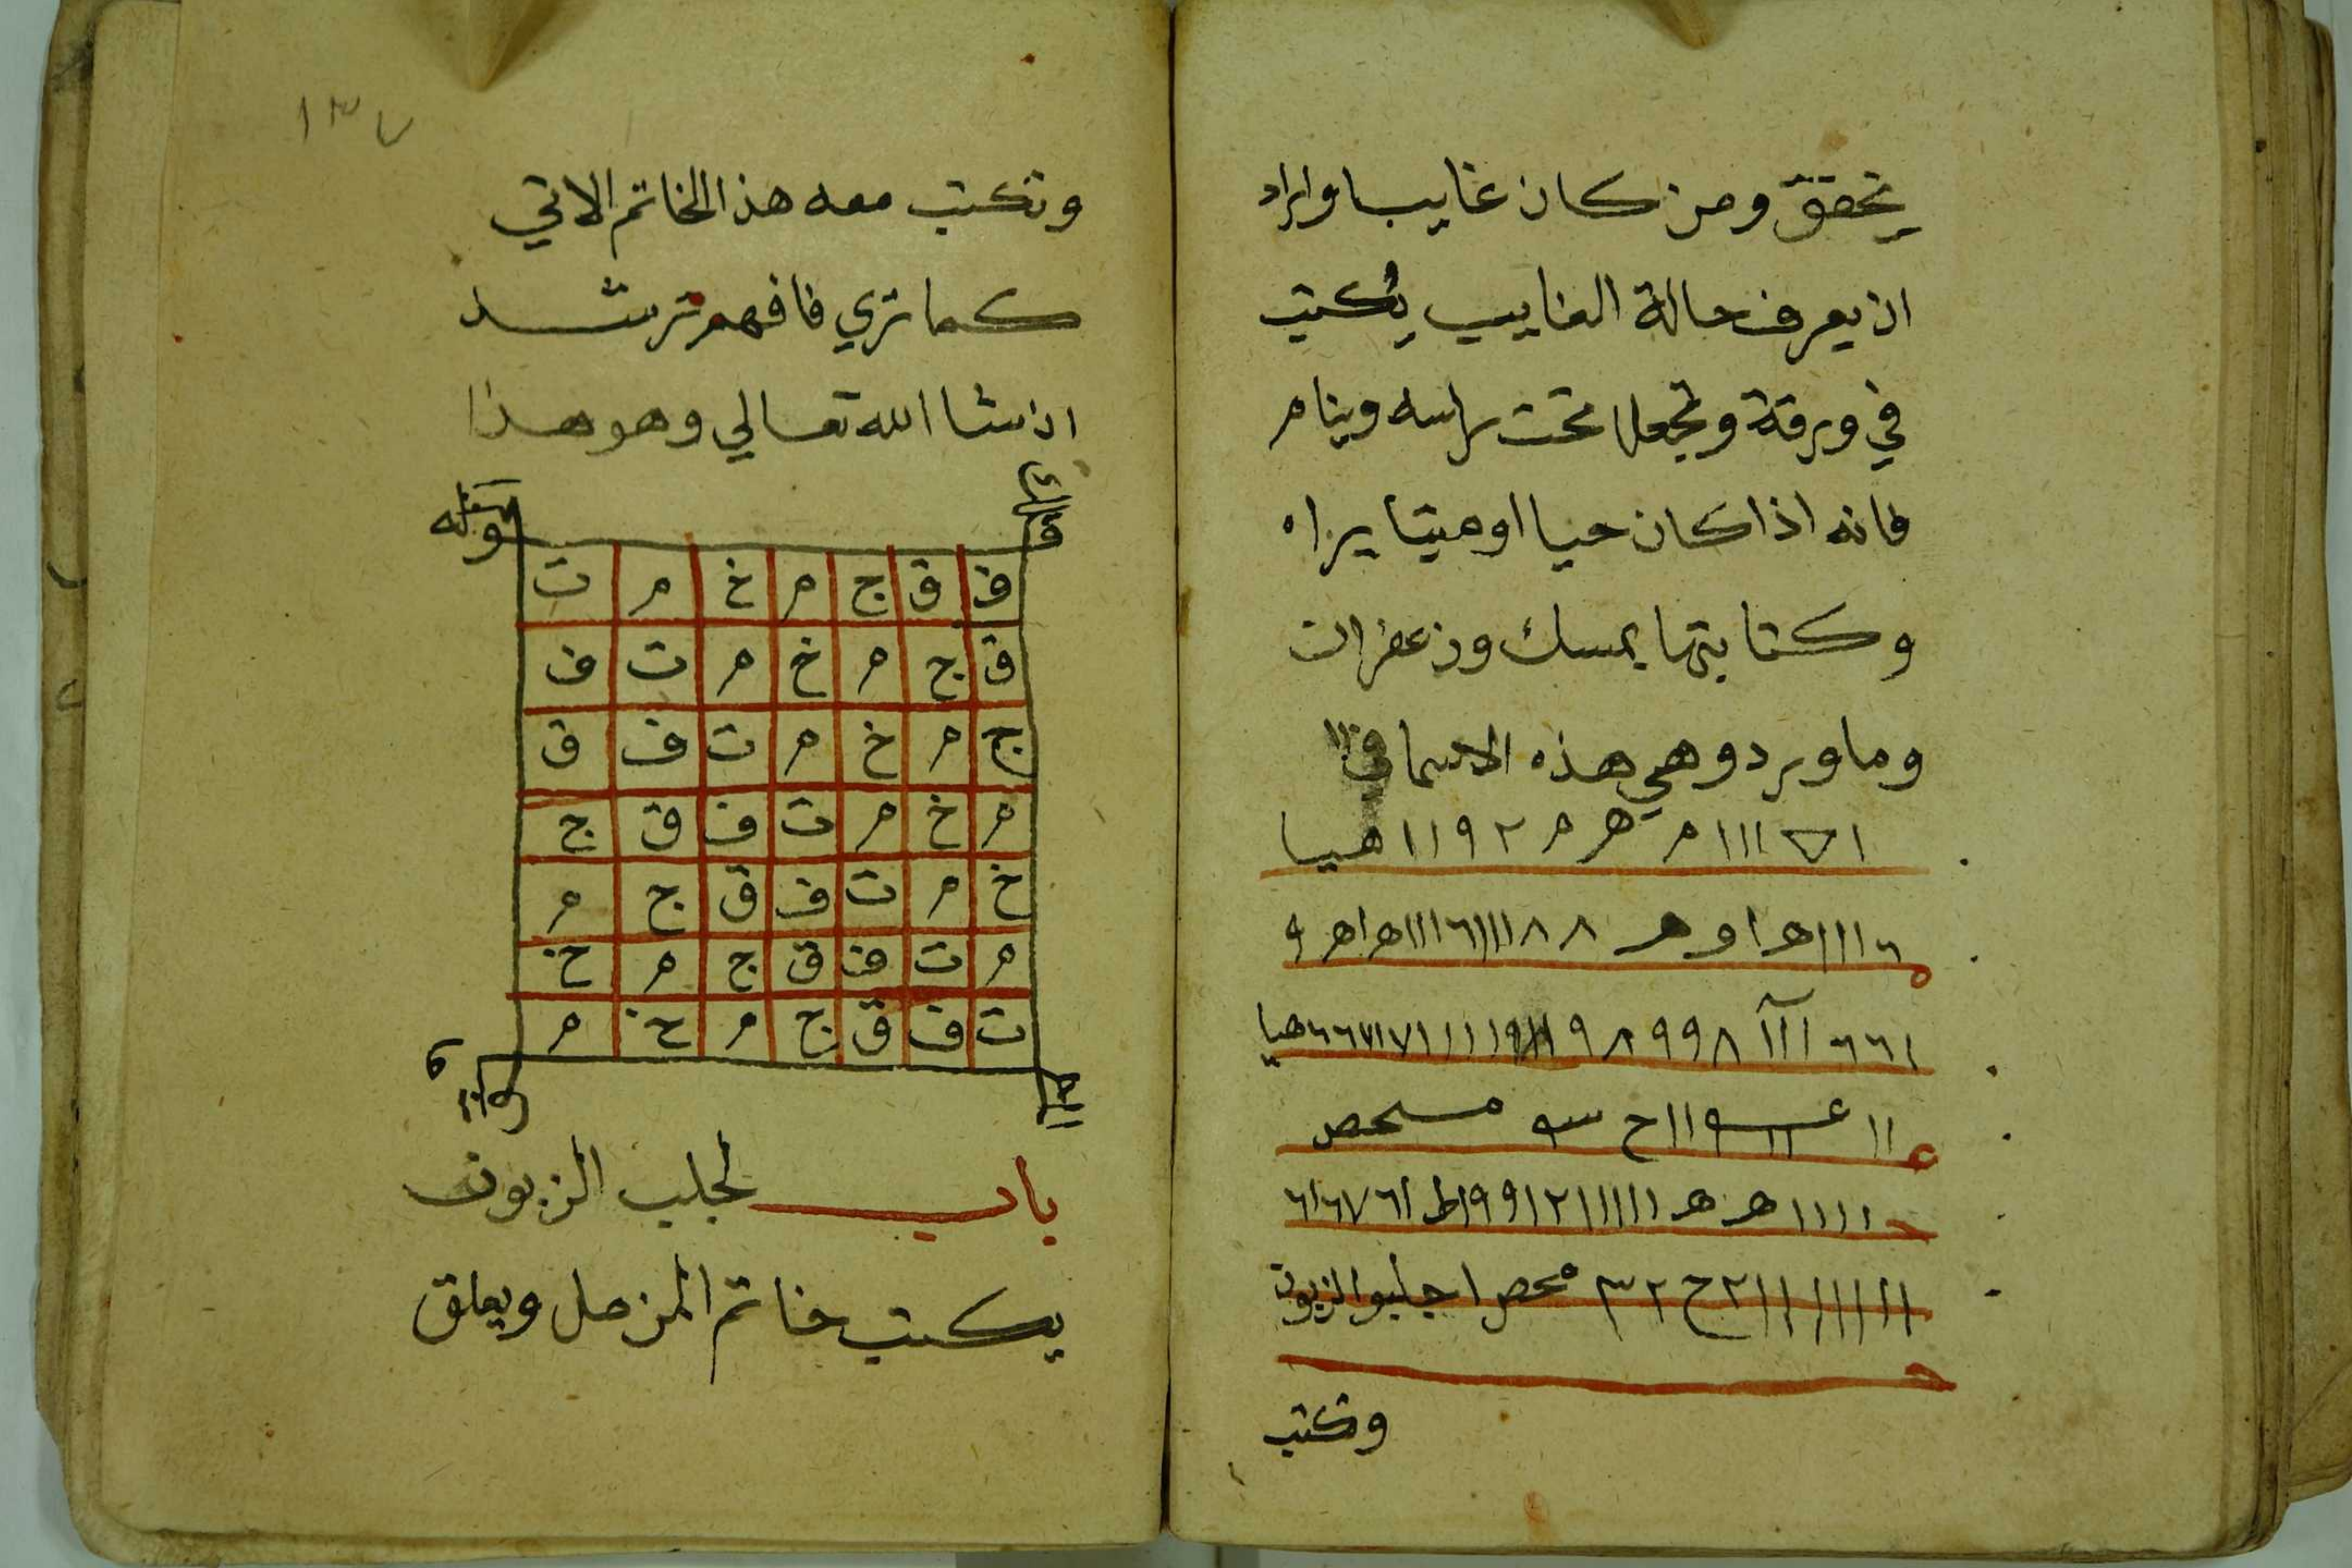 يتحقق ومن كان غايبا واراد
ان يعرف حالة الغايب يكتب
في ورقة وتجعل تحت راسه وينام
فانه اذا كان حيا او ميتا يراه
وكتابتها بمسك وزعفران
وما ورد وهي هذه الاسما
ااا م ه م م ٢ ٩ ١ ١ هيا
٦ ااا ه ا و ه ٨ ٨ ااا ٦ ااا ه ا ه و
ا ٦ ٦ ٨ ٩ ٩ ٨ ٩ هيا
١١ ح مسحصر
١١١١ ه ه ١١١١١ ٢ ١ ٩ ٩ ط ١ ٦ ٧ ٦ ١ ٦
٢ ح ٢ ٣ محصر اجلبوا الزبون
وتكتب
١٣٧
وتكتب معه هذا الخاتم الاتي
كما تري فافهم ترشد
ان شا الله تعالي وهو هذا
ف ق ج م خ م ت
ق ج م خ م ت ف
ج م خ م ت ف ق
م خ م ت ف ق ج
خ م ت ف ق ج م
م ت ف ق ج م خ
ت ف ق ج م خ م
باب لجلب الزبون
يكتب خاتم المزمل ويعلق